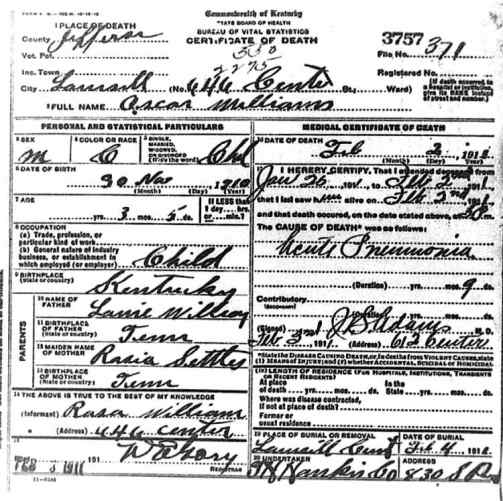 Commonwealth of Kentucky
STATE BOARD OF HEALTH
BUREAU OF VITAL STATISTICS
CERTIFICATE OF DEATH
1 PLACE OF DEATH
County Jefferson
Vot. Pct.
Inc. Town
City (No. 646 Center St., Ward)
3757
File No. 371
Registered No.
(If death occurred in a hospital or institution, give its NAME instead of street and number.)
2 FULL NAME Oscar Williams
PERSONAL AND STATISTICAL PARTICULARS
3 SEX
M
4 COLOR OR RACE
C
5 SINGLE, MARRIED, WIDOWED, OR DIVORCED (Write the word)
Chd
6 DATE OF BIRTH
30 Nov 1910
(Month) (Day) (Year)
7 AGE
yrs. 3 mos. 5 ds.
If LESS than 1 day ... hrs. or ... min.?
8 OCCUPATION
(a) Trade, profession, or particular kind of work
(b) General nature of industry business, or establishment in which employed (or employer) Child
9 BIRTHPLACE
(State or country) Kentucky
PARENTS
10 NAME OF FATHER
11 BIRTHPLACE OF FATHER
(State or country) Tenn
12 MAIDEN NAME OF MOTHER
13 BIRTHPLACE OF MOTHER
(State or country) Tenn
14 THE ABOVE IS TRUE TO THE BEST OF MY KNOWLEDGE
(Informant) Rosa Williams
(Address) 646 Center
15
FEB 3 1911
REGISTRAR
MEDICAL CERTIFICATE OF DEATH
16 DATE OF DEATH
Feb 2, 191
(Month) (Day) (Year)
17 I HEREBY CERTIFY, That I attended deceased from
Jan 25, 191, to Feb 2nd 191
that I last saw him alive on Feb 2nd 191
and that death occurred, on the date stated above, at
The CAUSE OF DEATH* was as follows:
Acute Pneumonia
(Duration) yrs. mos. 9 ds.
Contributory
(Duration) yrs. mos. ds.
(Signed) M. D.
Feb 3 191 (Address) Center
*State the DISEASE CAUSING DEATH, or, in deaths from VIOLENT CAUSES, state (1) MEANS OF INJURY; and (2) whether ACCIDENTAL, SUICIDAL or HOMICIDAL
18 LENGTH OF RESIDENCE (FOR HOSPITALS, INSTITUTIONS, TRANSIENTS OR RECENT RESIDENTS)
At place of death yrs. mos. ds. In the State yrs. mos. ds.
Where was disease contracted, if not at place of death?
Former or usual residence
19 PLACE OF BURIAL OR REMOVAL
DATE OF BURIAL
Feb 4 191
20 UNDERTAKER
ADDRESS
830 S